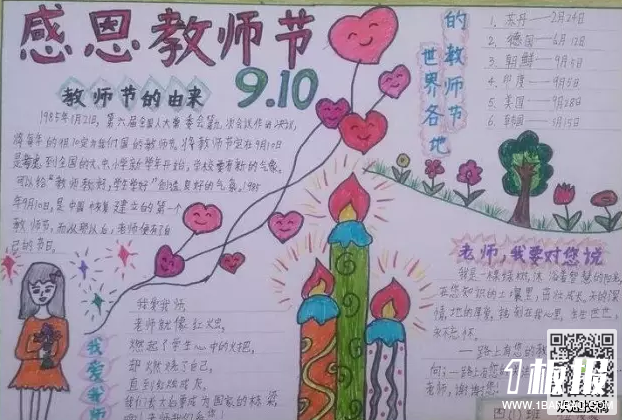 感恩教师节
9.10
教师节的由来
1985年1月21日,第六届全国人大常委会第九次会议作出决议,
将每年的9月10定为我们国的教师节。将教师节定在9月10日
是考虑到全国的大、中、小学新学年开始,学校要有新的气象。
可以给"教师教好,学生学好"创造良好的气氛。1985
年9月10日,是中国恢复建立的第一个
教师节,而从那以后,老师便有了自
己的节日。
世界各地
的教师节
1、苏丹——2月24日
2、德国——6月12日
3、朝鲜——9月5日
4、印度——9月5日
5、美国——9月28日
6、韩国——5月15日
我爱我师
我爱我师,
老师就像红火虫,
燃起了学生心中的火把,
却燃烧了自己,
直到红烛成灰,
我们长大后要成为国家的栋梁,
老师,我要对您说
我是一棵绿树,沐浴着智慧的阳光,
在您知识的土壤里,茁壮成长,天的深
情,地的厚爱,铭刻在我心里,生生世世,
永不忘怀。
一路上有您的教
向;一路上
老师,谢谢您!
1板报
WWW.1BANBAO.COM